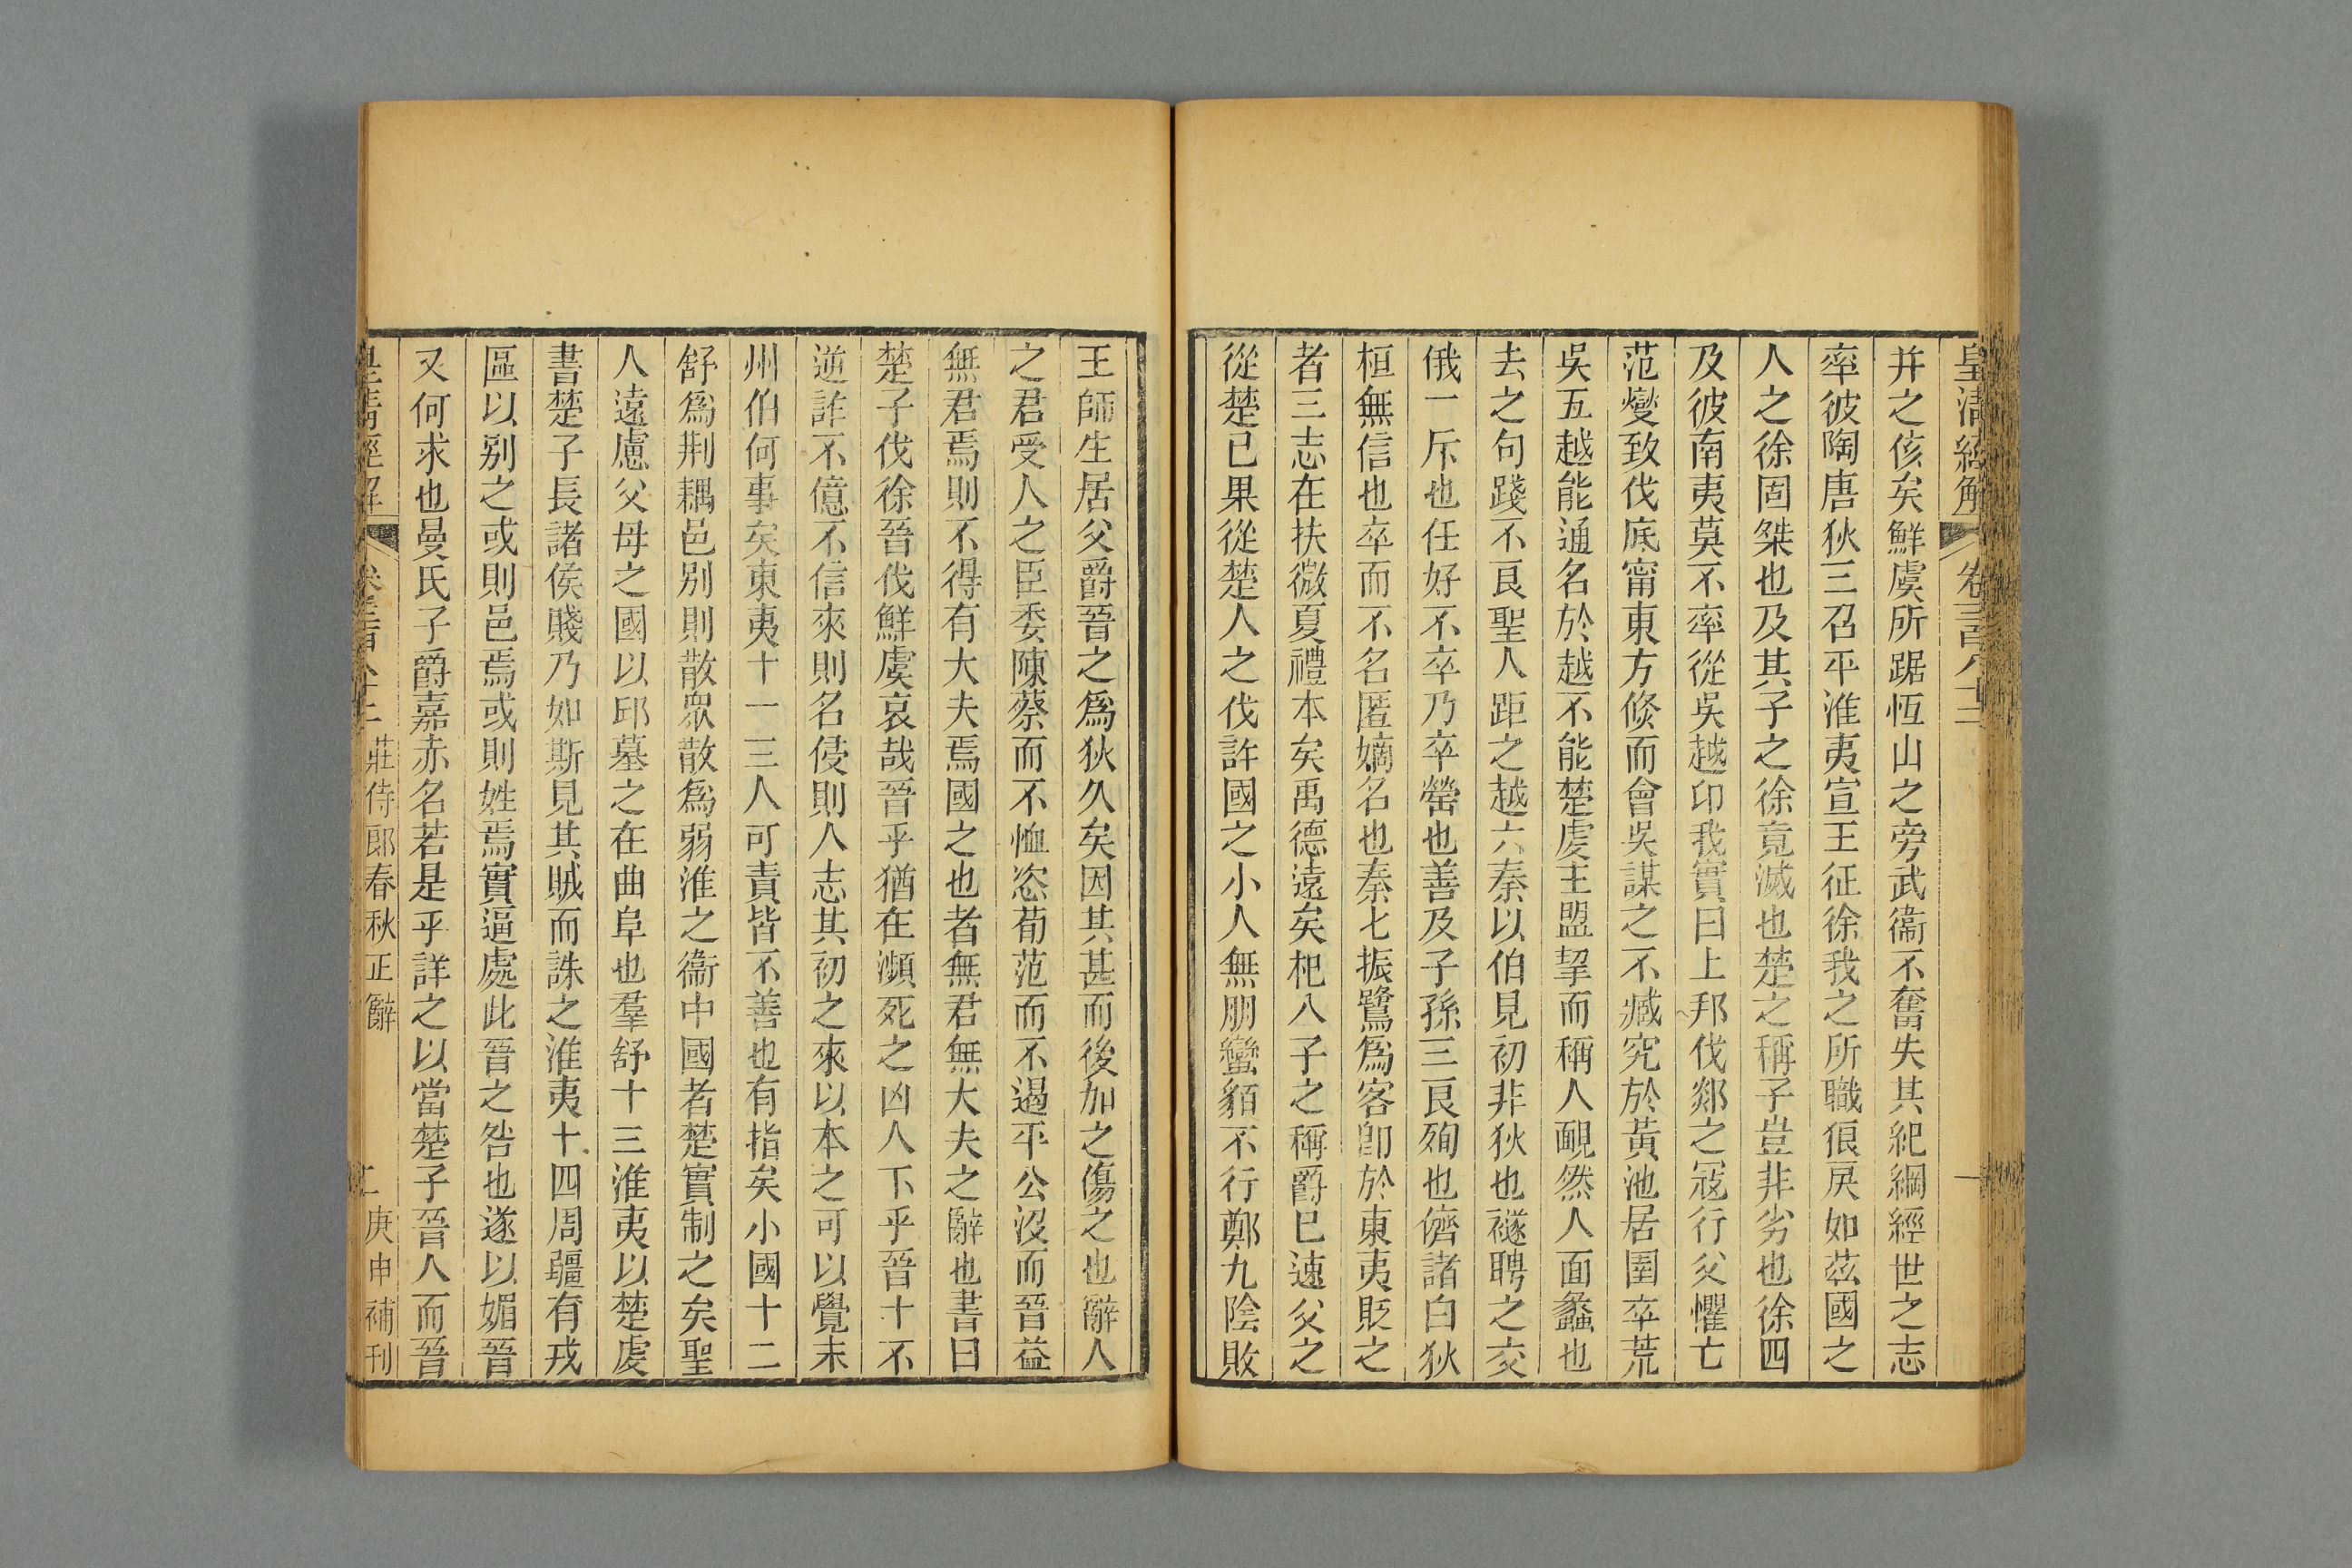 皇清經解 卷三百八十二 一
并之侅矣鮮虞所踞恆山之旁武衞不奮失其紀綱經世之志
率彼陶唐狄三召平淮夷宣王征徐我之所職很戾如茲國之
人之徐固桀也及其子之徐竟滅也楚之稱子豈非劣也徐四
及彼南夷莫不率從吳越印我實曰上邦伐郯之寇行父懼亡
范燮致伐底甯東方倏而會吳謀之不臧究於黃池居圉卒荒
吳五越能通名於越不能楚虔主盟挈而稱人靦然人面蠡也
去之句踐不良聖人距之越六秦以伯見初非狄也襚聘之交
俄一斥也任好不卒乃卒罃也善及子孫三良殉也儕諸白狄
桓無信也卒而不名匿嫡名也秦七振鷺爲客卽於東夷貶之
者三志在扶微夏禮本矣禹德遠矣杞八子之稱爵已速父之
從楚已果從楚人之伐許國之小人無朋蠻貊不行鄭九陰敗
王師生居父爵晉之爲狄久矣因其甚而後加之傷之也辭人
之君受人之臣委陳蔡而不恤恣荀范而不遏平公沒而晉益
無君焉則不得有大夫焉國之也者無君無大夫之辭也書曰
楚子伐徐晉伐鮮虞哀哉晉乎猶在瀕死之凶人下乎晉十不
逆詐不億不信來則名侵則人志其初之來以本之可以覺未
州伯何事矣東夷十一三人可責皆不善也有指矣小國十二
舒爲荆耦邑别則散衆散爲弱淮之衞中國者楚實制之矣聖
人遠慮父母之國以邱墓之在曲阜也羣舒十三淮夷以楚虔
書楚子長諸侯賤乃如斯見其賊而誅之淮夷十四周疆有戎
區以别之或則邑焉或則姓焉實逼處此晉之咎也遂以媚晉
又何求也曼氏子爵嘉赤名若是乎詳之以當楚子晉人而晉
皇清經解 卷三百八十二 莊侍郎春秋正辭 二 庚申補刊